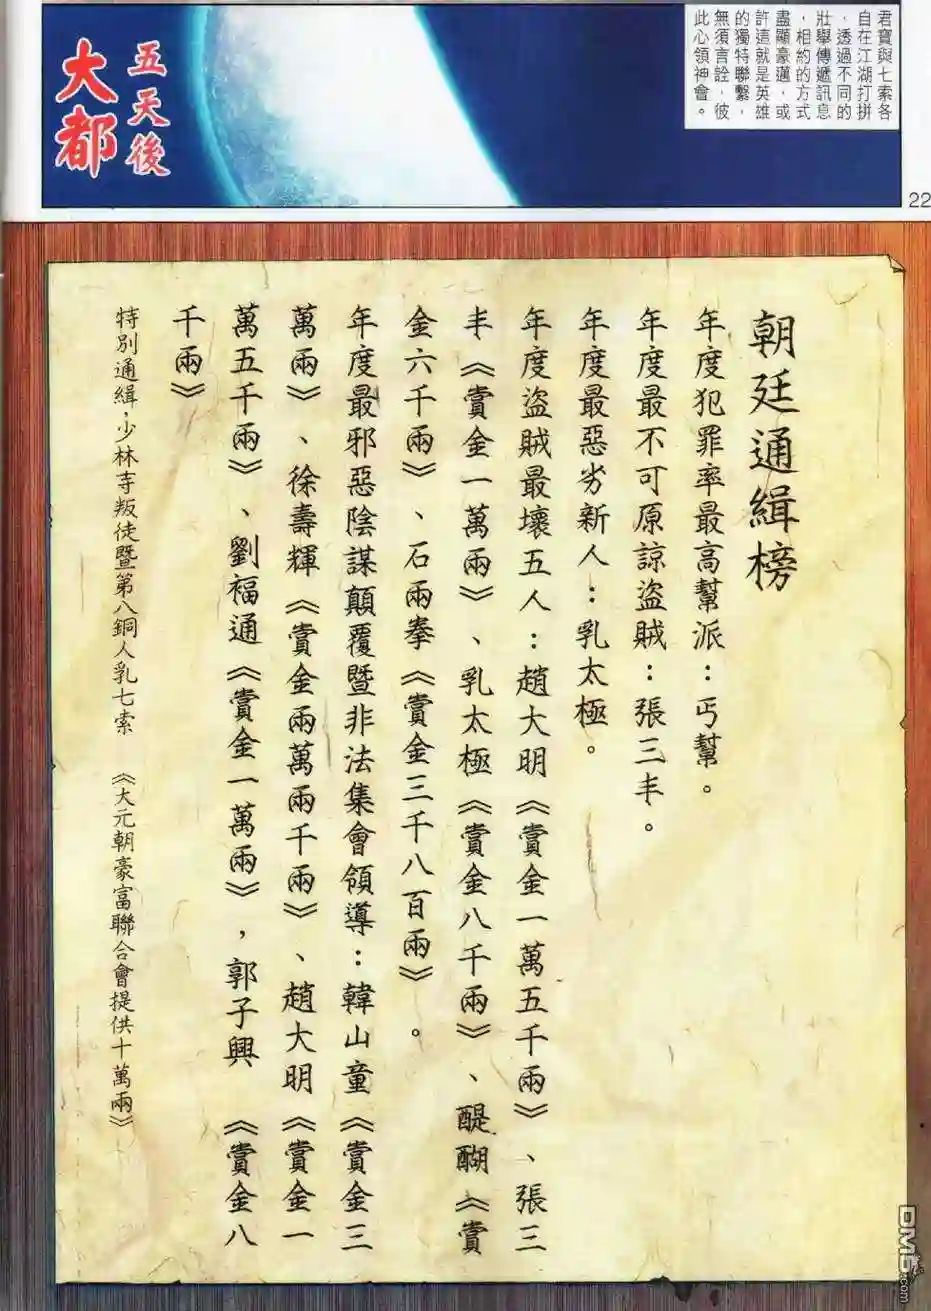 君寶與七索各
自在江湖打拼
，透過不同的
壯舉傳遞訊息
，相約的方式
盡顯豪邁，或
許這就是英雄
的獨特聯繫，
無須言詮，彼
此心領神會。
五天後
大都
22
朝廷通緝榜
年度犯罪率最高幫派：丐幫。
年度最不可原諒盜賊：張三丰。
年度最惡劣新人：乳太極。
年度盜賊最壞五人：趙大明《賞金一萬五千兩》、張三
丰《賞金一萬兩》、乳太極《賞金八千兩》、醍醐《賞
金六千兩》、石兩拳《賞金三千八百兩》。
年度最邪惡陰謀顛覆暨非法集會領導：韓山童《賞金三
萬兩》、徐壽輝《賞金兩萬兩千兩》、趙大明《賞金一
萬五千兩》、劉福通《賞金一萬兩》，郭子興 《賞金八
千兩》
特別通緝，少林寺叛徒暨第八銅人乳七索 《大元朝豪富聯合會提供十萬兩》
DM5.com